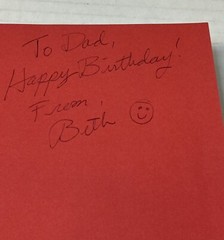 To Dad,
Happy Birthday!
From,
Beth